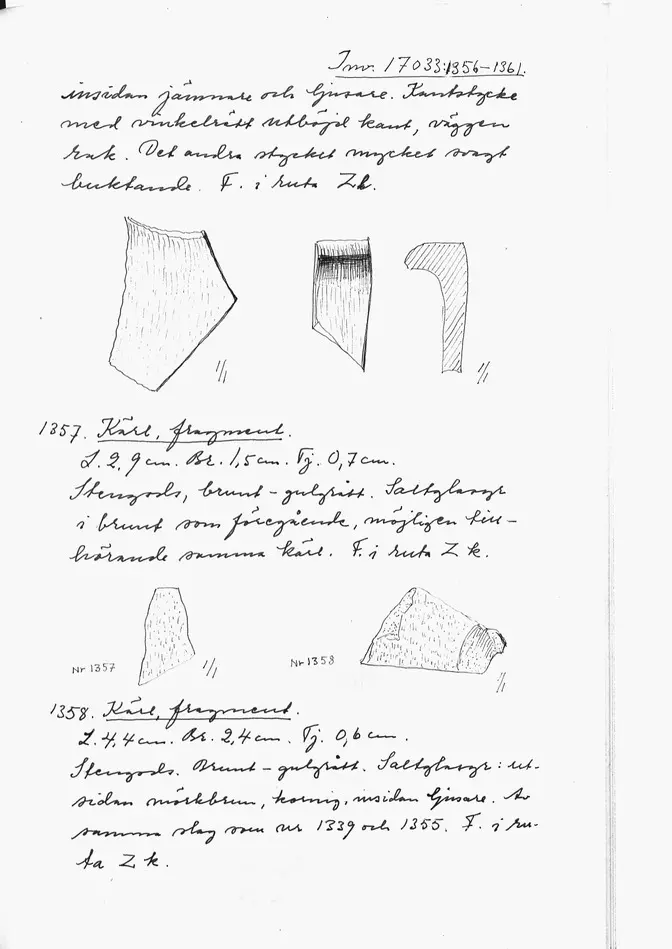 Inv. 17033:1356-1361.
insidan jämnare och ljusare. Kantstycke
med vinkelrätt utböjd kant, väggen
rak. Det andra stycket mycket svagt
buktande. F. i ruta Zk.
1/1
1/1
1357. Kärl, fragment.
L. 2,9 cm. Br. 1,5 cm. Tj. 0,7 cm.
Stengods, brunt-gulgrått. Saltglasyr
i brunt som föregående, möjligen till-
hörande samma kärl. F. i ruta Z k.
Nr 1357
1/1
Nr 1358
1/1
1358. Kärl, fragment.
L. 4,4 cm. Br. 2,4 cm. Tj. 0,6 cm.
Stengods. Brunt-gulgrått. Saltglasyr: ut-
sidan mörkbrun, kornig, insidan ljusare. Av
samma slag som nr 1339 och 1355. F. i ru-
ta Z k.